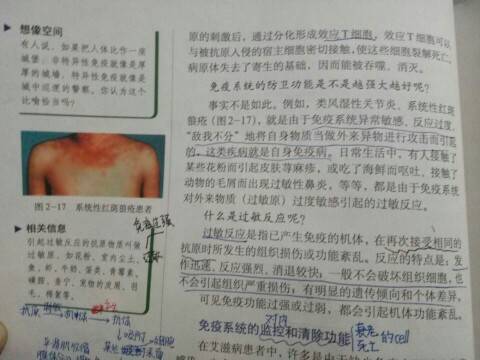 想像空间
有人说，如果把人体比作一座
城堡，非特异性免疫就像是厚
厚的城墙，特异性免疫就像是
城中巡逻的警察。你认为这个
比喻恰当吗？
图2-17 系统性红斑狼疮患者
相关信息
引起过敏反应的抗原物质叫做
过敏原，如花粉、室内尘土、
鱼、虾、牛奶、蛋类、青霉素、
磺胺、奎宁、宠物的皮屑、羽
毛、棉絮等。
原的刺激后，通过分化形成效应T细胞，效应T细胞可以
与被抗原入侵的宿主细胞密切接触，使这些细胞裂解死亡，
病原体失去了寄生的基础，因而能被吞噬、消灭。
免疫系统的防卫功能是不是越强大越好呢？
事实不是如此。例如，类风湿性关节炎、系统性红斑
狼疮(图2-17)，就是由于免疫系统异常敏感、反应过度，
“敌我不分”地将自身物质当做外来异物进行攻击而引起
的，这类疾病就是自身免疫病。日常生活中，有人接触了
某些花粉而引起皮肤荨麻疹，或吃了海鲜而呕吐，接触了
动物的毛屑而出现过敏性鼻炎，等等，都是由于免疫系统
对外来物质（过敏原）过度敏感引起的过敏反应。
什么是过敏反应呢？
过敏反应是指已产生免疫的机体，在再次接受相同的
抗原时所发生的组织损伤或功能紊乱。反应的特点是：发
作迅速、反应强烈、消退较快；一般不会破坏组织细胞，也
不会引起组织严重损伤；有明显的遗传倾向和个体差异。
可见免疫功能过强或过弱，都会引起机体功能紊乱。
免疫系统的监控和清除功能
在艾滋病患者中，许多是由于